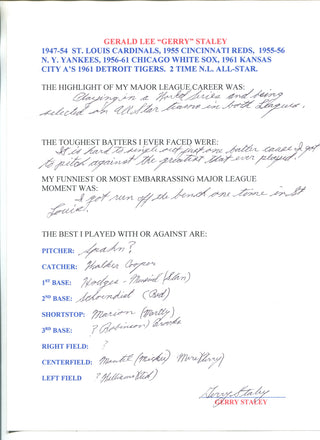 GERALD LEE "GERRY" STALEY
1947-54 ST. LOUIS CARDINALS, 1955 CINCINNATI REDS, 1955-56
N. Y. YANKEES, 1956-61 CHICAGO WHITE SOX, 1961 KANSAS
CITY A'S 1961 DETROIT TIGERS. 2 TIME N.L. ALL-STAR.
THE HIGHLIGHT OF MY MAJOR LEAGUE CAREER WAS:
Playing in a World Series and being
selected on All Star teams in both Leagues.
THE TOUGHEST BATTERS I EVER FACED WERE:
It is hard to single out just one batter cause I got
to pitch against the greatest that ever played.
MY FUNNIEST OR MOST EMBARRASSING MAJOR LEAGUE
MOMENT WAS:
I got run off the bench one time in St
Louis.
THE BEST I PLAYED WITH OR AGAINST ARE:
PITCHER: Spahn?
CATCHER: Walker Cooper
1ST BASE: Hodges - Musial (Stan)
2ND BASE: Schoendist (Red)
SHORTSTOP: Marion (Marty)
3RD BASE: ? (Robinson) Brooks
RIGHT FIELD: ?
CENTERFIELD: Mantel (Mickey) Mays
LEFT FIELD ? Williams (Ted)
Gerry Staley
GERRY STALEY